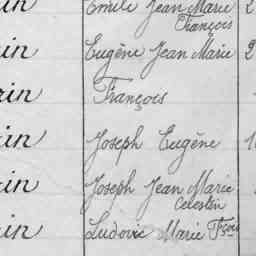 in Émile Jean Marie 2
François
in Eugène Jean Marie 2
rin François
in Joseph Eugène 1
rin Joseph Jean Marie
Celestin
in Ludovic Marie Fçois